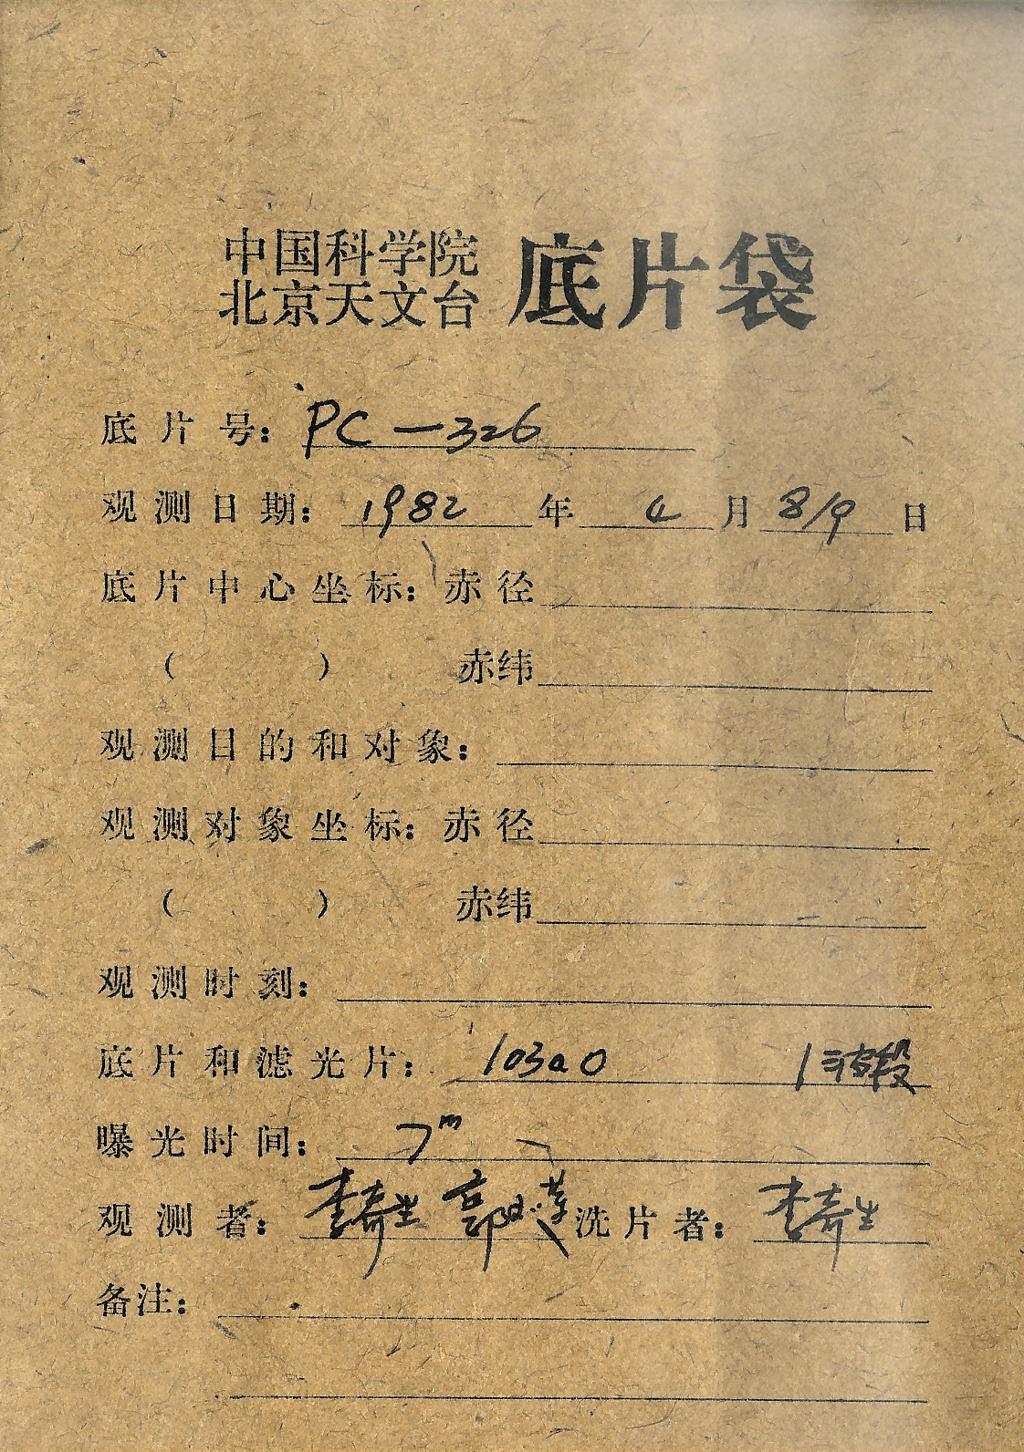 中国科学院
北京天文台 底片袋
底片号: PC-326
观测日期: 1982 年 4 月 8/9 日
底片中心坐标: 赤径
( ) 赤纬
观测目的和对象:
观测对象坐标: 赤径
( ) 赤纬
观测时刻:
底片和滤光片: 103aO 波段
曝光时间: 7m
观测者: 李奇生 郭 洗片者: 李奇生
备注: